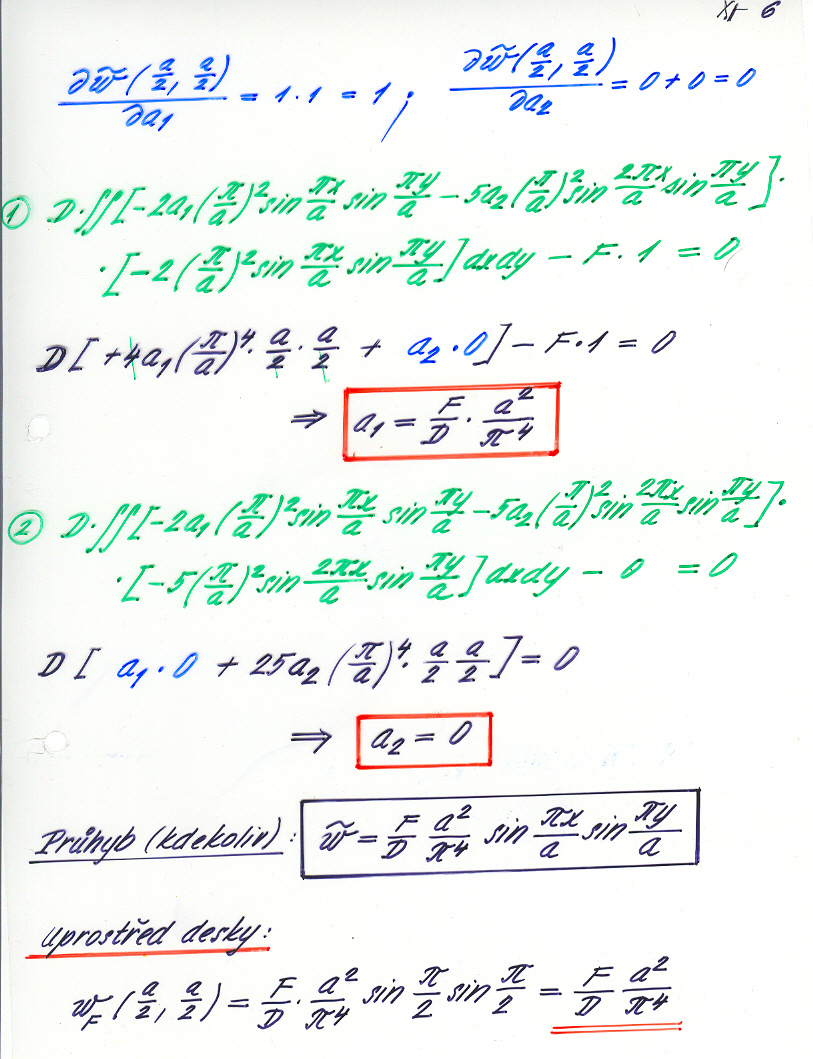 XI-6
∂w̃(a/2, a/2)/∂a₁ = 1·1 = 1; ∂w̃(a/2, a/2)/∂a₂ = 0+0=0
① D·∬[-2a₁(π/a)² sin πx/a sin πy/a - 5a₂(π/a)² sin 2πx/a sin πy/a]·
·[-2(π/a)² sin πx/a sin πy/a]dxdy - F·1 = 0
D[+4a₁(π/a)⁴· a/2 · a/2 + a₂·0] - F·1 = 0
⇒ a₁ = F/D · a²/π⁴
② D·∬[-2a₁(π/a)² sin πx/a sin πy/a - 5a₂(π/a)² sin 2πx/a sin πy/a]·
·[-5(π/a)² sin 2πx/a sin πy/a]dxdy - 0 = 0
D[ a₁·0 + 25a₂(π/a)⁴· a/2 a/2] = 0
⇒ a₂ = 0
Průhyb (kdekoliv): w̃ = F/D a²/π⁴ sin πx/a sin πy/a
uprostřed desky:
w_F(a/2, a/2) = F/D · a²/π⁴ sin π/2 sin π/2 = F/D a²/π⁴